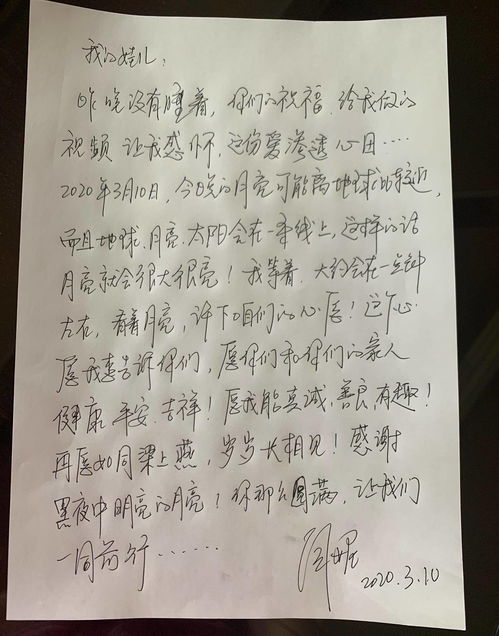 我的娃儿：
昨晚没有睡着，你们的祝福，给我做的
视频 让我感怀，这份爱渗透心田……
2020年3月10日，今晚的月亮可能离地球比较近，
而且地球、月亮、太阳会在一条线上，这样的话
月亮就会很大很亮！我等着，大约会在一点钟
左右，看着月亮，许下咱们的心愿！这个心
愿我要告诉你们，愿你们和你们的家人
健康、平安、吉祥！愿我能真诚，善良，有趣！
再愿如同梁上燕，岁岁长相见！感谢
黑夜中明亮的月亮！你那么圆满，让我们
一同前行……
闫妮
2020.3.10